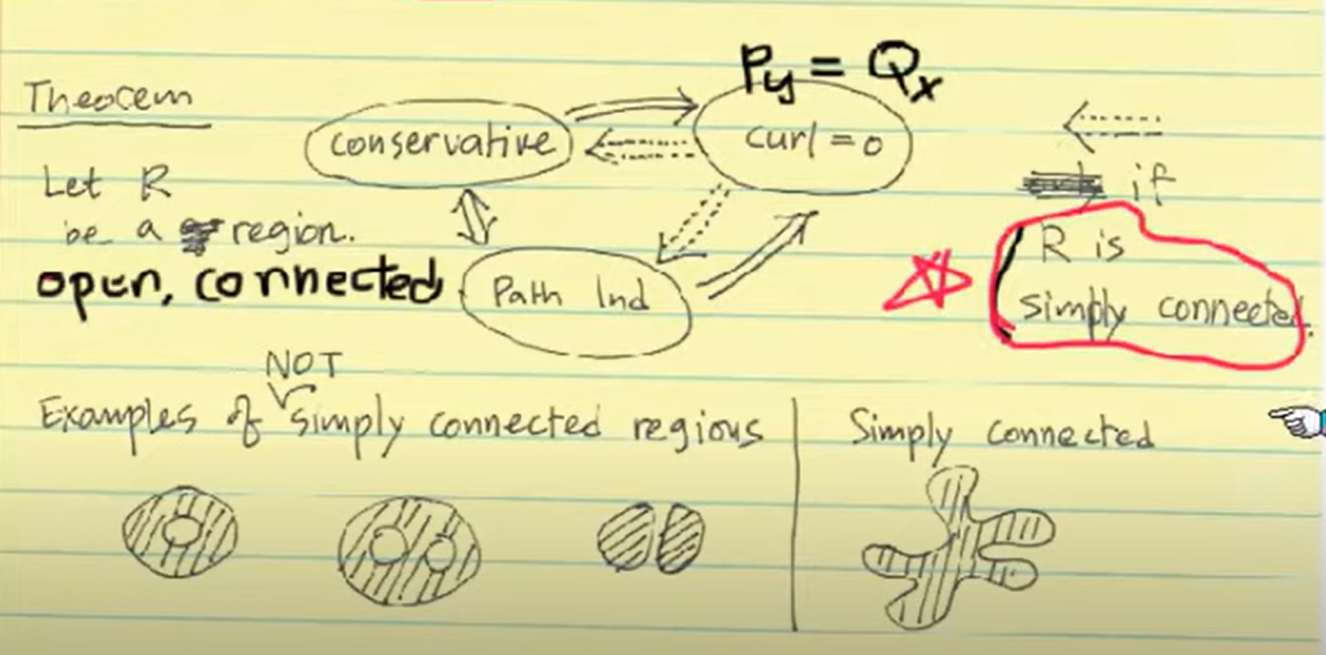 Theorem
Let R
be a region.
open, connected
conservative
Py = Qx
curl = 0
Path Ind
if
R is
simply connected.
NOT
Examples of simply connected regions
Simply connected